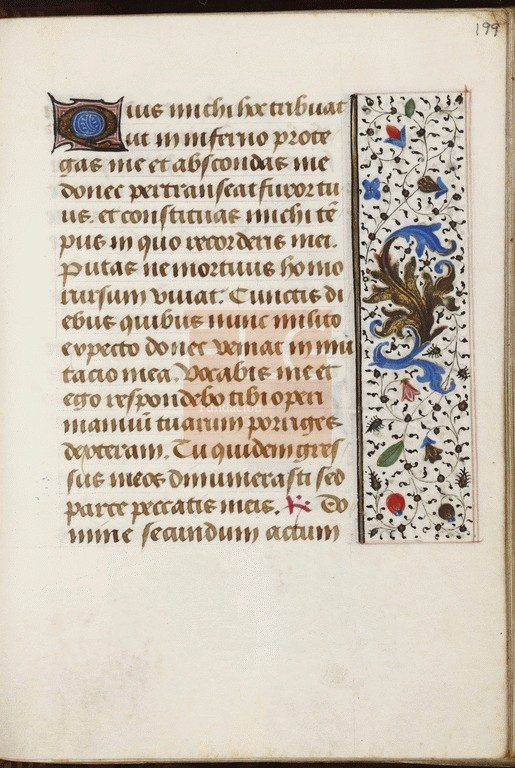 199
Quis michi hoc tribuat
ut in inferno prote
gas me et abscondas me
donec pertranseat furor tu
us. et constituas michi tẽ
pus in quo recorderis mei.
Putas ne mortuus homo
rursum vivat. Cunctis di
ebus quibus nunc milito
expecto donec veniat in mu
tacio mea. Vocabis me et
ego respondebo tibi operi
manuũ tuarum porriges
dexteram. Tu quidem gres
sus meos dinumerasti sed
parce peccatis meis. Do
mine secundum actum
Fundación